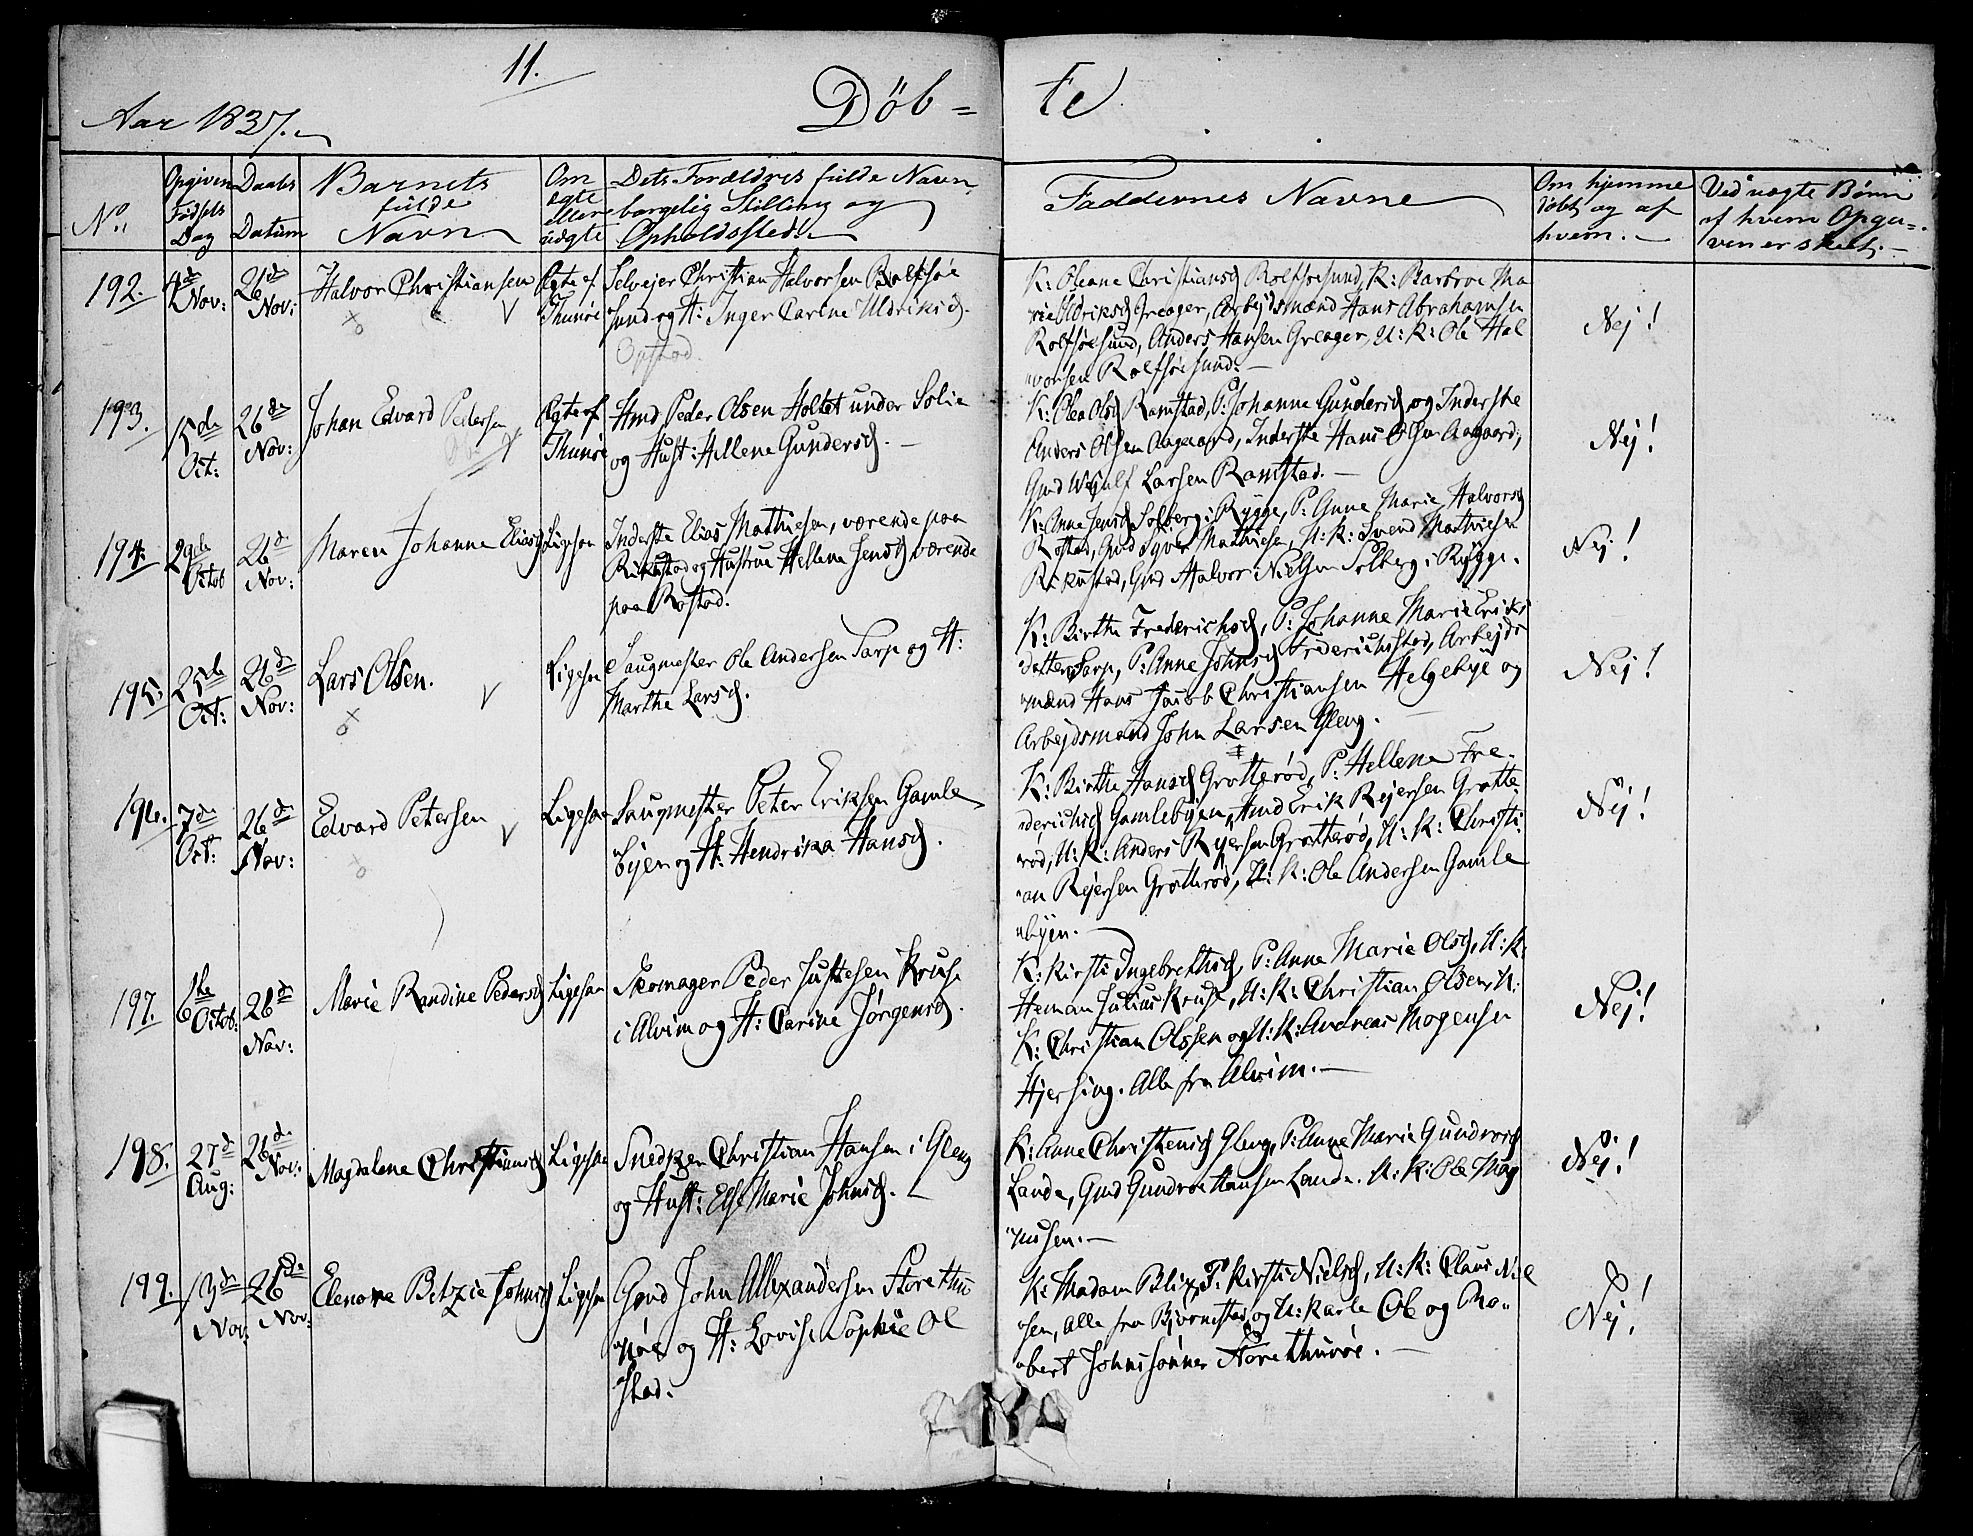 11.
Døb= te
Aar 1837.
No.
Opgiven Fødsels Dag
Daabs Datum
Barnets fulde Navn
Om ægte eller uægte
Dets Forældres fulde Navn, borgelig Stilling og Opholdssted.
Faddernes Navne
Om hjemme døbt og af hvem.
Ved uægte Børn af hvem Opgaven er skeet.
192. 4de Nov: 26de Nov: Halvor Christiansen Ægte af Thunøe
Selvejer Christian Halvorsen Rolfsøe
sund og H: Inger Carine Uldriksd.
Opstad.
K: Oleane Christiansd Rolfsøesund, K: Barbroe Ma
rie Uldriksd Greager, Arbejdsmænd Hans Abrahamsen
Rolfsøesund, Anders Hansen Greager, U: K: Ole Hal
vorsen Rolfsøesund.
Nej!
193. 15de Oct: 26de Nov: Johan Edvard Pedersen Ægte af Thunøe
Hmd Peder Olsen Holtet under Solie
og Hust: Hellene Gundersd.
K: Olea Olsd Ramstad, P: Johanne Gundersd og Inderste
Anders Olsen Aagaard, Inderste Hans Olsen Aagaard,
Gmd Wulf Larsen Ramstad.
Nej!
194. 29de Octob 26de Nov: Maren Johanne Eliasd Ligesaa
Inderste Elias Mathiesen, værende paa
Rikustad og Hustrue Hellene Jensd værende
paa Rostad.
K: Anne Jensd Solberg i Rygge, P: Anne Marie Halvorsd
Rostad, Gmd Syver Mathiesen, U: K: Svend Mathiesen
Rikustad, Gmd Halvor Nielsen Solberg i Rygge.
Nej!
195. 25de Oct: 26de Nov: Lars Olsen. Ligesaa
Saugmester Ole Andersen Sarp og H:
Marthe Larsd.
K: Birthe Frederichsd, P: Johanne Marie Eriks
datter Sarp, P: Anne Johnsd Frederichstad, Arbejds
mænd Hans Jacob Christiansen Helgebye og
Arbejdsmand John Larsen Gleng.
Nej!
196. 7de Oct: 26de Nov: Edvard Petersen Ligesaa
Saugmester Peter Eriksen Gamle
byen og H: Hendrika Hansd.
K: Birthe Hansd Grotterød, P: Hellene Fre-
derichsd Gamlebyen, Hmd Erik Rejersen Grotte
rød, U: K: Anders Rejersen Grotterød, U: K: Christi
an Rejersen Grotterød, U: K: Ole Andersen Gamle
byen.
Nej!
197. 6te Octob: 26de Nov: Marie Randine Pedersd Ligesaa
Skomager Peder Justesen Kruse
i Alvim og H: Carine Jørgensd.
K: Kirsti Ingebrethsd, P: Anne Marie Olsd, U: K:
Heman Julius Kruse, U: K: Christian Olsen, K:
K: Christian Olssen og U: K: Andreas Mogensen
Hjersing. Alle fra Alvim.
Nej!
198. 27de Aug: 26de Nov: Magdalene Christiansd Ligesaa
Snedker Christian Hansen i Gleng
og Hust: Else Marie Johnsd.
K: Anne Christensd Gleng, P: Anne Marie Gundroesd
Lande, Gmd Gundroe Hansen Lande. U: K: Ole Mag
nusen.
Nej!
199. 13de Nov: 26de Nov: Elenore Betzie Johnsd Ligesaa
Gmd John Allexandersen Store Thu
nøe og H: Lovise Sophie Ol
stad.
K: Madam Blix, P: Kirsti Nielsd, U: K: Claus Niel
sen, alle fra Bjørnestad og U: Karle Ole og Ro-
bert Johnssønner Store Thunøe.
Nej!